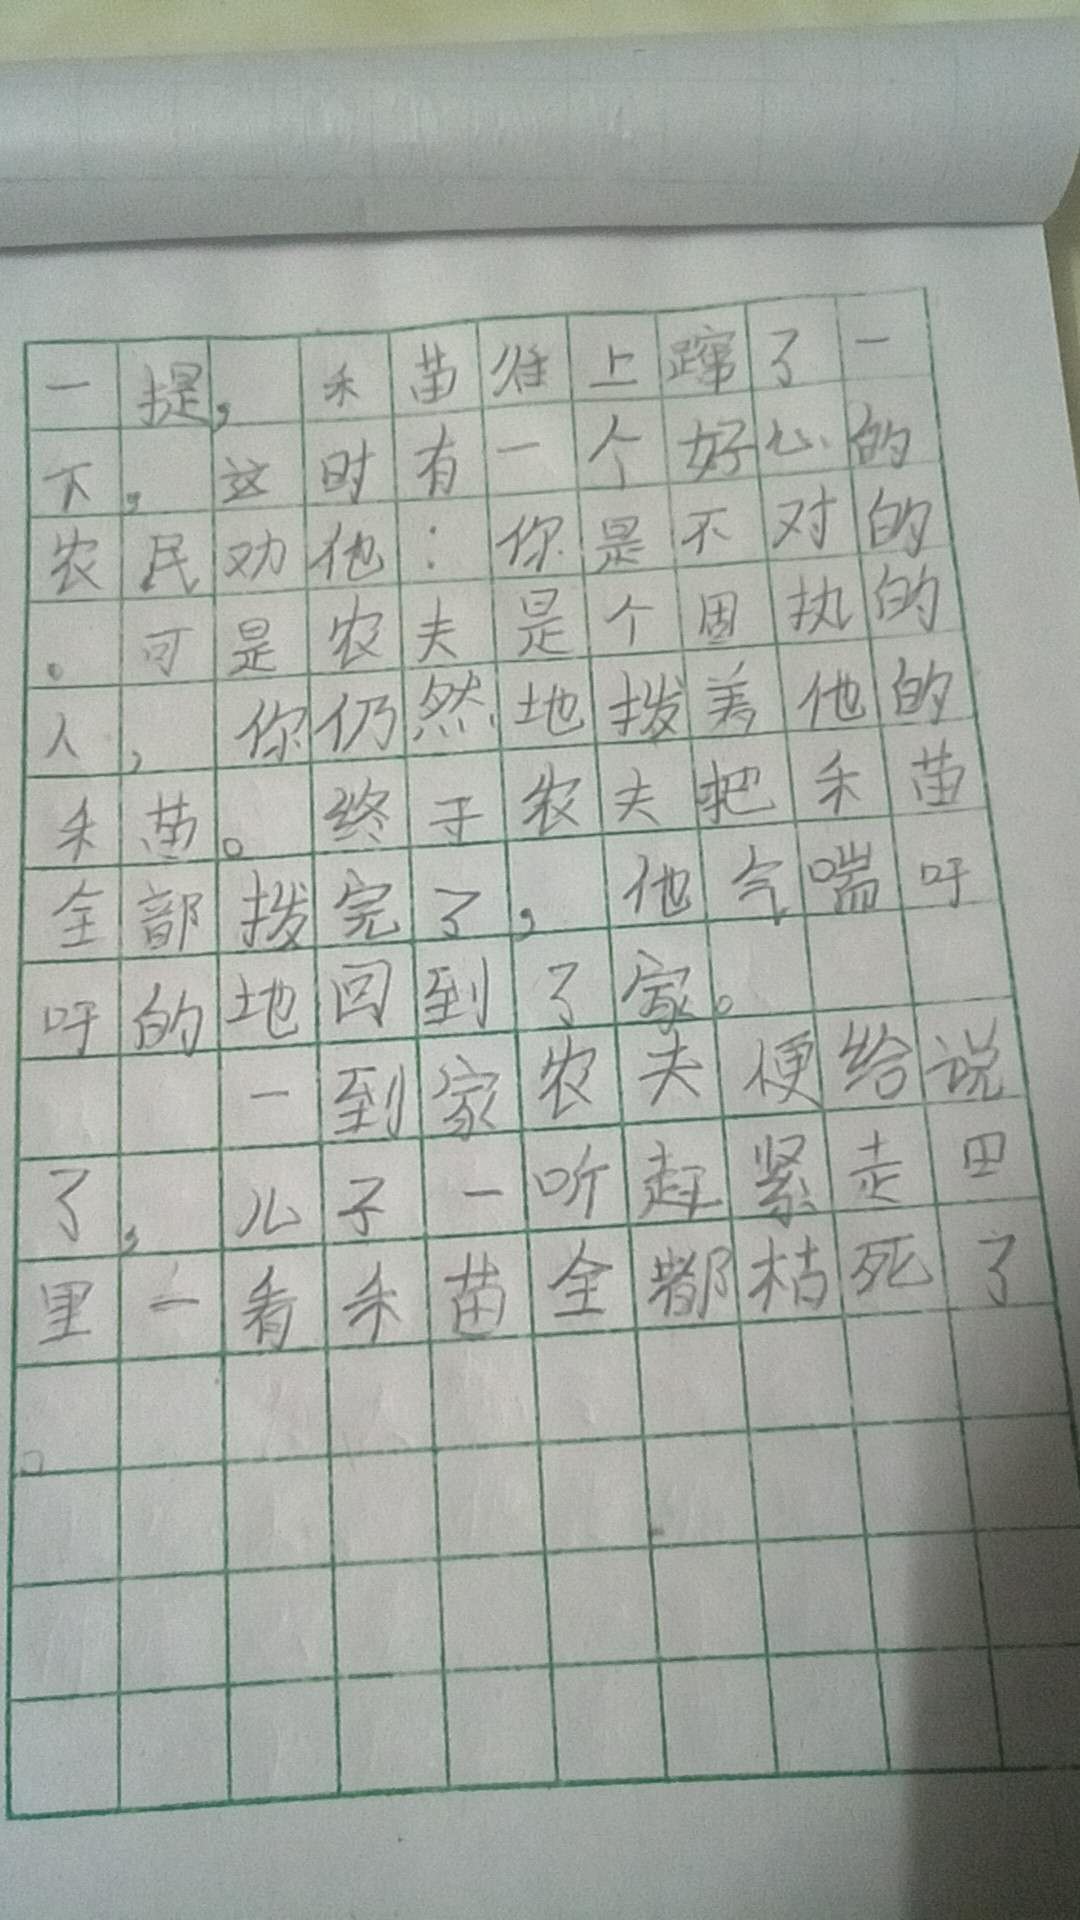 一提，禾苗往上蹿了一
下，这时有一个好心的
农民劝他：你是不对的
。可是农夫是个固执的
人，你仍然地拨着他的
禾苗。终于农夫把禾苗
全部拨完了，他气喘吁
吁的地回到了家。
一到家农夫便给说
了，儿子一听赶紧走田
里一看禾苗全都枯死了
。